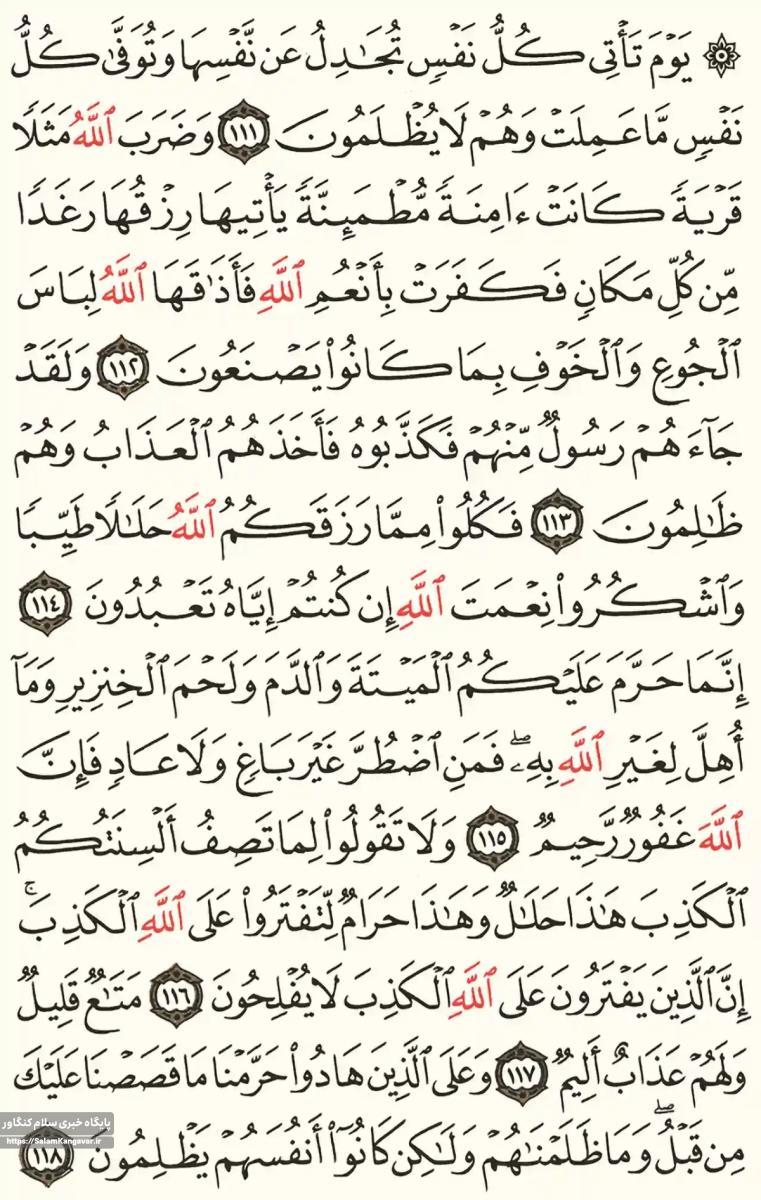 ۞ يَوْمَ تَأْتِى كُلُّ نَفْسٍ تُجَـٰدِلُ عَن نَّفْسِهَا وَتُوَفَّىٰ كُلُّ
نَفْسٍ مَّا عَمِلَتْ وَهُمْ لَا يُظْلَمُونَ ١١١ وَضَرَبَ ٱللَّهُ مَثَلًا
قَرْيَةً كَانَتْ ءَامِنَةً مُّطْمَئِنَّةً يَأْتِيهَا رِزْقُهَا رَغَدًا
مِّن كُلِّ مَكَانٍ فَكَفَرَتْ بِأَنْعُمِ ٱللَّهِ فَأَذَٰقَهَا ٱللَّهُ لِبَاسَ
ٱلْجُوعِ وَٱلْخَوْفِ بِمَا كَانُوا۟ يَصْنَعُونَ ١١٢ وَلَقَدْ
جَآءَهُمْ رَسُولٌ مِّنْهُمْ فَكَذَّبُوهُ فَأَخَذَهُمُ ٱلْعَذَابُ وَهُمْ
ظَـٰلِمُونَ ١١٣ فَكُلُوا۟ مِمَّا رَزَقَكُمُ ٱللَّهُ حَلَـٰلًا طَيِّبًا
وَٱشْكُرُوا۟ نِعْمَتَ ٱللَّهِ إِن كُنتُمْ إِيَّاهُ تَعْبُدُونَ ١١٤
إِنَّمَا حَرَّمَ عَلَيْكُمُ ٱلْمَيْتَةَ وَٱلدَّمَ وَلَحْمَ ٱلْخِنزِيرِ وَمَآ
أُهِلَّ لِغَيْرِ ٱللَّهِ بِهِۦۖ فَمَنِ ٱضْطُرَّ غَيْرَ بَاغٍ وَلَا عَادٍ فَإِنَّ
ٱللَّهَ غَفُورٌ رَّحِيمٌ ١١٥ وَلَا تَقُولُوا۟ لِمَا تَصِفُ أَلْسِنَتُكُمُ
ٱلْكَذِبَ هَـٰذَا حَلَـٰلٌ وَهَـٰذَا حَرَامٌ لِّتَفْتَرُوا۟ عَلَى ٱللَّهِ ٱلْكَذِبَۚ
إِنَّ ٱلَّذِينَ يَفْتَرُونَ عَلَى ٱللَّهِ ٱلْكَذِبَ لَا يُفْلِحُونَ ١١٦ مَتَـٰعٌ قَلِيلٌ
وَلَهُمْ عَذَابٌ أَلِيمٌ ١١٧ وَعَلَى ٱلَّذِينَ هَادُوا۟ حَرَّمْنَا مَا قَصَصْنَا عَلَيْكَ
مِن قَبْلُۖ وَمَا ظَلَمْنَـٰهُمْ وَلَـٰكِن كَانُوٓا۟ أَنفُسَهُمْ يَظْلِمُونَ ١١٨
پایگاه خبری سلام کنگاور
https://SalamKangavar.ir